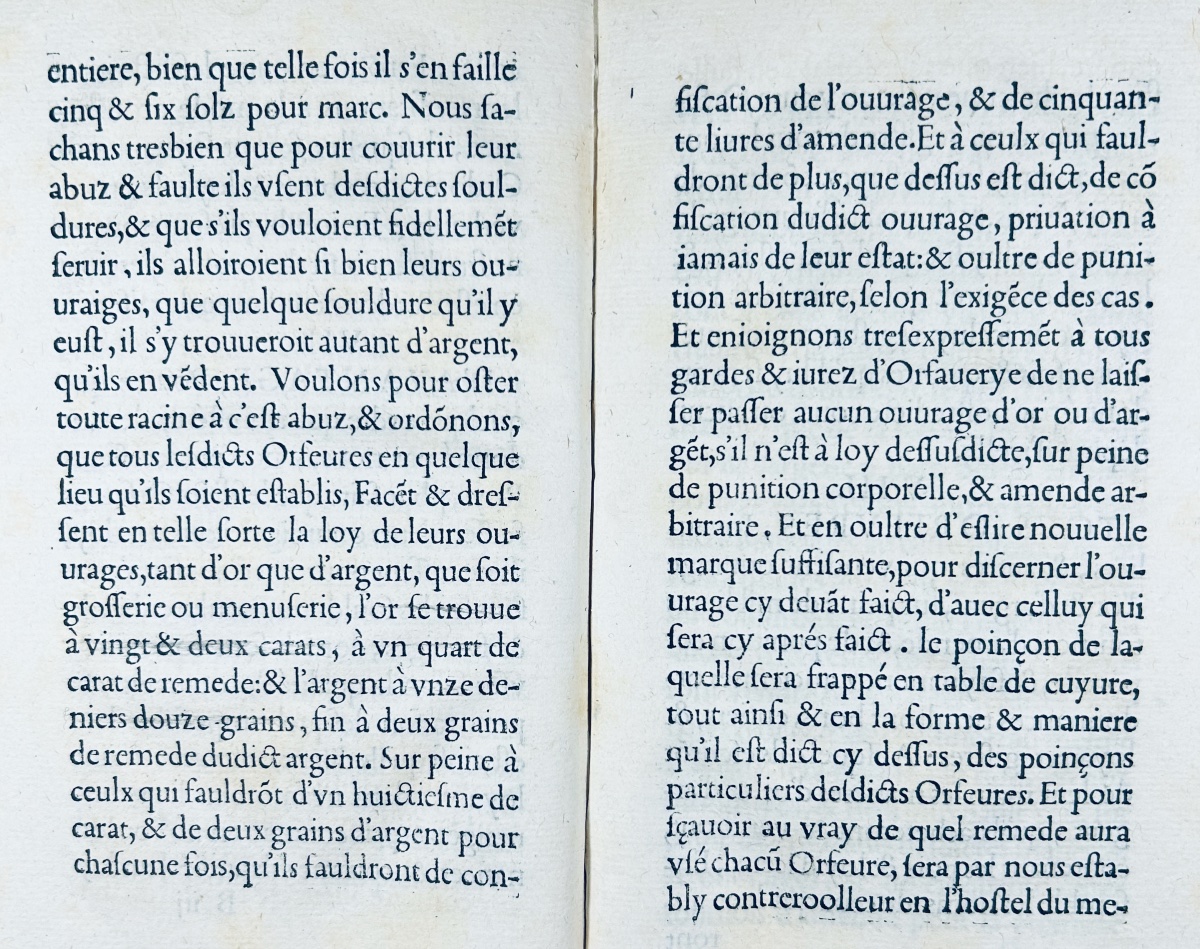 entiere, bien que telle fois il s'en faille
cinq & ſix ſolz pour marc. Nous ſa-
chans tresbien que pour couurir leur
abuz & faulte ils vſent deſdictes ſoul-
dures,& que s'ils vouloient fidellemẽt
ſeruir, ils alloiroient ſi bien leurs ou-
uraiges, que quelque ſouldure qu'il y
euſt, il s'y trouueroit autant d'argent,
qu'ils en vẽdent. Voulons pour oſter
toute racine à c'eſt abuz,& ordõnons,
que tous leſdicts Orfeures en quelque
lieu qu'ils ſoient eſtablis, Facẽt & dreſ-
ſent en telle ſorte la loy de leurs ou-
urages,tant d'or que d'argent, que ſoit
groſſerie ou menuſerie, l'or ſe trouue
à vingt & deux carats, à vn quart de
carat de remede:& l'argent à vnze de-
niers douze grains, fin à deux grains
de remede dudict argent. Sur peine à
ceulx qui fauldrõt d'vn huictieſme de
carat, & de deux grains d'argent pour
chaſcune fois,qu'ils fauldront de con-
fiſcation de l'ouurage, & de cinquan-
te liures d'amende.Et à ceulx qui faul-
dront de plus,que deſſus eſt dict,de cõ
fiſcation dudict ouurage, priuation à
iamais de leur eſtat:& oultre de puni-
tion arbitraire,ſelon l'exigẽce des cas.
Et enioignons treſexpreſſemẽt à tous
gardes & iurez d'Orfauerye de ne laiſ-
ſer paſſer aucun ouurage d'or ou d'ar-
gẽt,s'il n'eſt à loy deſſuſdicte,ſur peine
de punition corporelle,& amende ar-
bitraire. Et en oultre d'eſlire nouuelle
marque ſuffiſante,pour diſcerner l'ou-
urage cy deuãt faict, d'auec celluy qui
ſera cy aprés faict. le poinçon de la-
quelle ſera frappé en table de cuyure,
tout ainſi & en la forme & maniere
qu'il eſt dict cy deſſus, des poinçons
particuliers deſdicts Orfeures. Et pour
ſçauoir au vray de quel remede aura
vſé chacũ Orfeure, ſera par nous eſta-
bly contreroolleur en l'hoſtel du me-